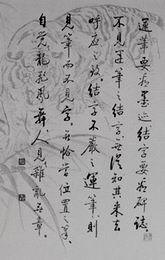 運筆要看墨迹結字要看碑誌
不見運筆之結字無從知其来去
呼應之致結字不嚴之運筆則
見筆而不見字無恰當位置之筆
自覺龍飛鳳舞人見雜亂無章